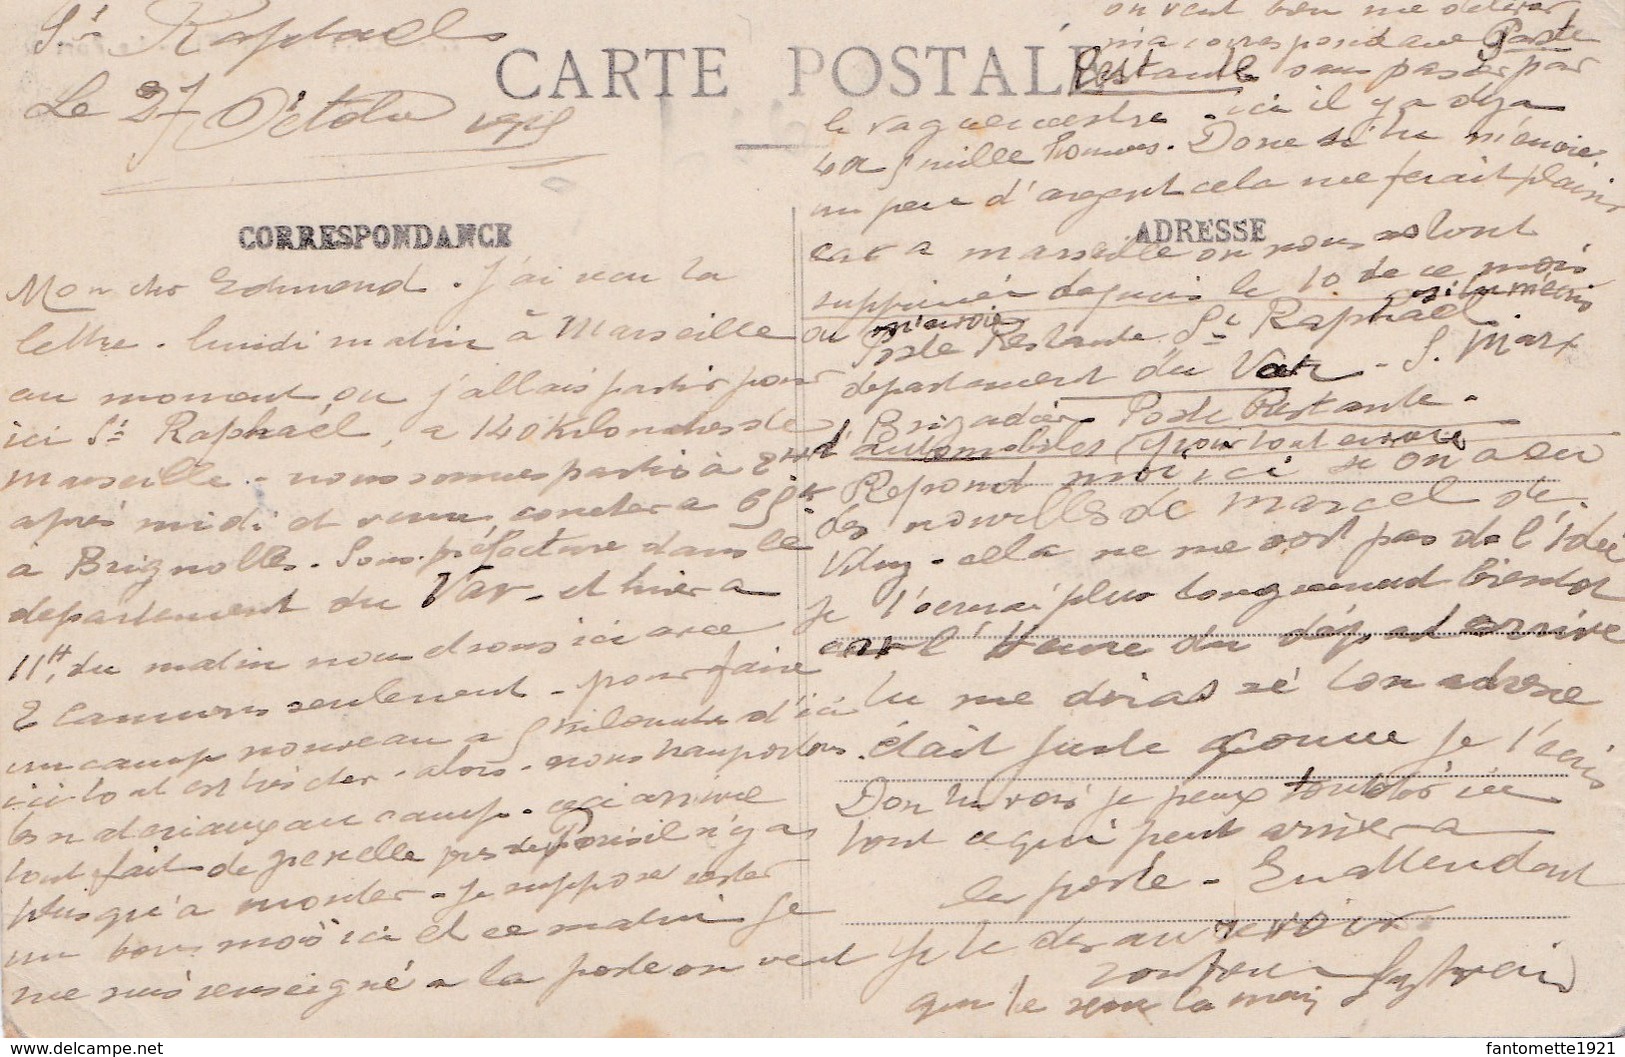 St Raphael
Le 27 Octobre 1915
CARTE POSTALE
CORRESPONDANCE
Mon cher Edmond. J'ai reçu ta
lettre. lundi matin à Marseille
au moment ou j'allais partir pour
ici St Raphaél, a 140 kilometres de
Marseille - nous sommes partis à 2
après midi et venu coucher a 6
a Brignolles. Sous-préfecture dans le
departement du Var - et hier a
11H, du matin nous etions ici avec
2 camions seulement - pour faire
un camp nouveau a 5 kilometres d'ici
ici tout est très cher - alors - nous transportons
les materiaux au camp - ceci arrive
tout fait de il n'y a
plus qu'a monter - je suppose rester
un bons mois ici et ce matin je
me suis renseigné a la poste on veut
on veut bien me delivrer
ma correspondance Poste
Restante sans passer par
le vaguemestre - ici il y a deja
4 a 5 mille hommes. Donc si tu m'envoie
un peu d'argent cela me ferait plaisir
ADRESSE
car a marseille on nous
supprimée depuis le 10 de ce mois
ou si tu m'ecris
m'envoie
Poste Restante St Raphaël
departement du Var - S. Marx
Brigadier Poste Restante -
automobiles pour tout
Repond moi ici si on a eu
des nouvelles de Marcel de
Vitry - cella ne me sort pas de l'Idée
je t'ecrirai plus longuement bientot
car l'Heure du dépat arrive
tu me diras si ton adresse
était juste comme je l'
Don tu vois je peux ici
tout ce qui peut arriver a
la poste - En attendant
je te dis au revoir
ton frere Sylvain
qui te serre la main
fantomette1921